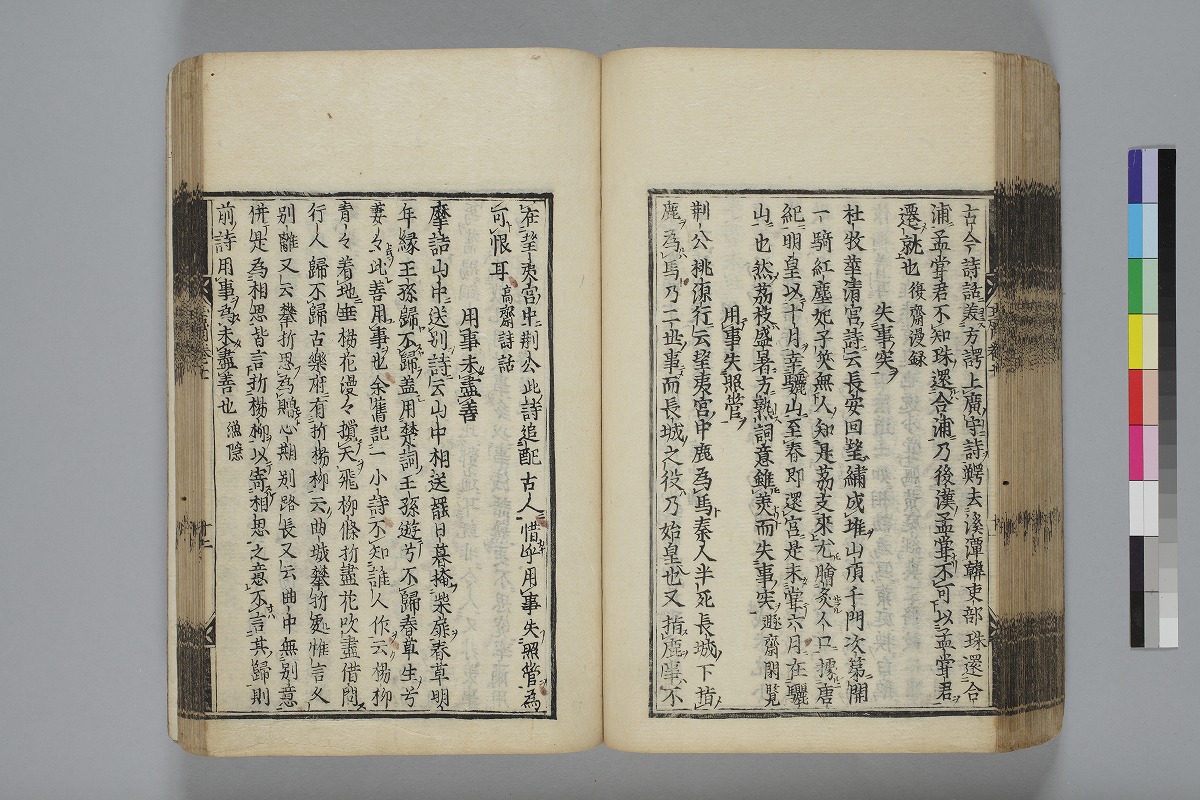 古今詩話羙方諤上廣守詩鱷去溪潭韓吏部珠還合
浦孟甞君不知珠還合浦乃後漢孟甞不可以孟甞君
遷就也後齋漫録
失事実
杜牧華清宮詩云長安回望繡成堆山頂千門次第開
一騎紅塵妃子笑無人知是荔支來尤膾炙人口據唐
紀明皇以十月幸驪山至春即還宮是未甞六月在驪
山也然荔枝盛暑方熟詞意雖羙而失事実遯齋閑覧
用事失照管
荆公桃源行云望夷宮中鹿為馬秦人半死長城下指
鹿為馬乃二世事而長城之役乃始皇也又指鹿事不
在望夷宮中荆公此詩追配古人惜乎用事失照管為
可恨耳高齋詩話
用事未盡善
摩詰山中送別詩云山中相送罷日暮掩柴扉春草明
年緑王孫歸不歸盖用楚詞王孫遊兮不歸春草生兮
萋々此善用事也余舊記一小詩不知誰人作云楊柳
青々着地垂楊花漫々攪天飛柳條折盡花吹盡借問
行人歸不歸古樂府有折楊柳云曲城攀折處惟言久
別離又云攀折思為贈心期別路長又云曲中無別意
併是為相思皆言折楊柳以寄相思之意不言其歸則
前詩用事為未盡善也漁隠